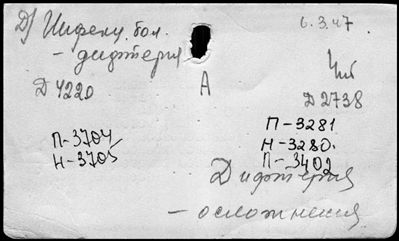 Д) Инфекц. бол.
6.3.47
- дифтерия
Д 4220
А
Д 2738
П-3704
Н-3705
П-3281
Н-3280.
П-3402
Дифтерия
- осложнения